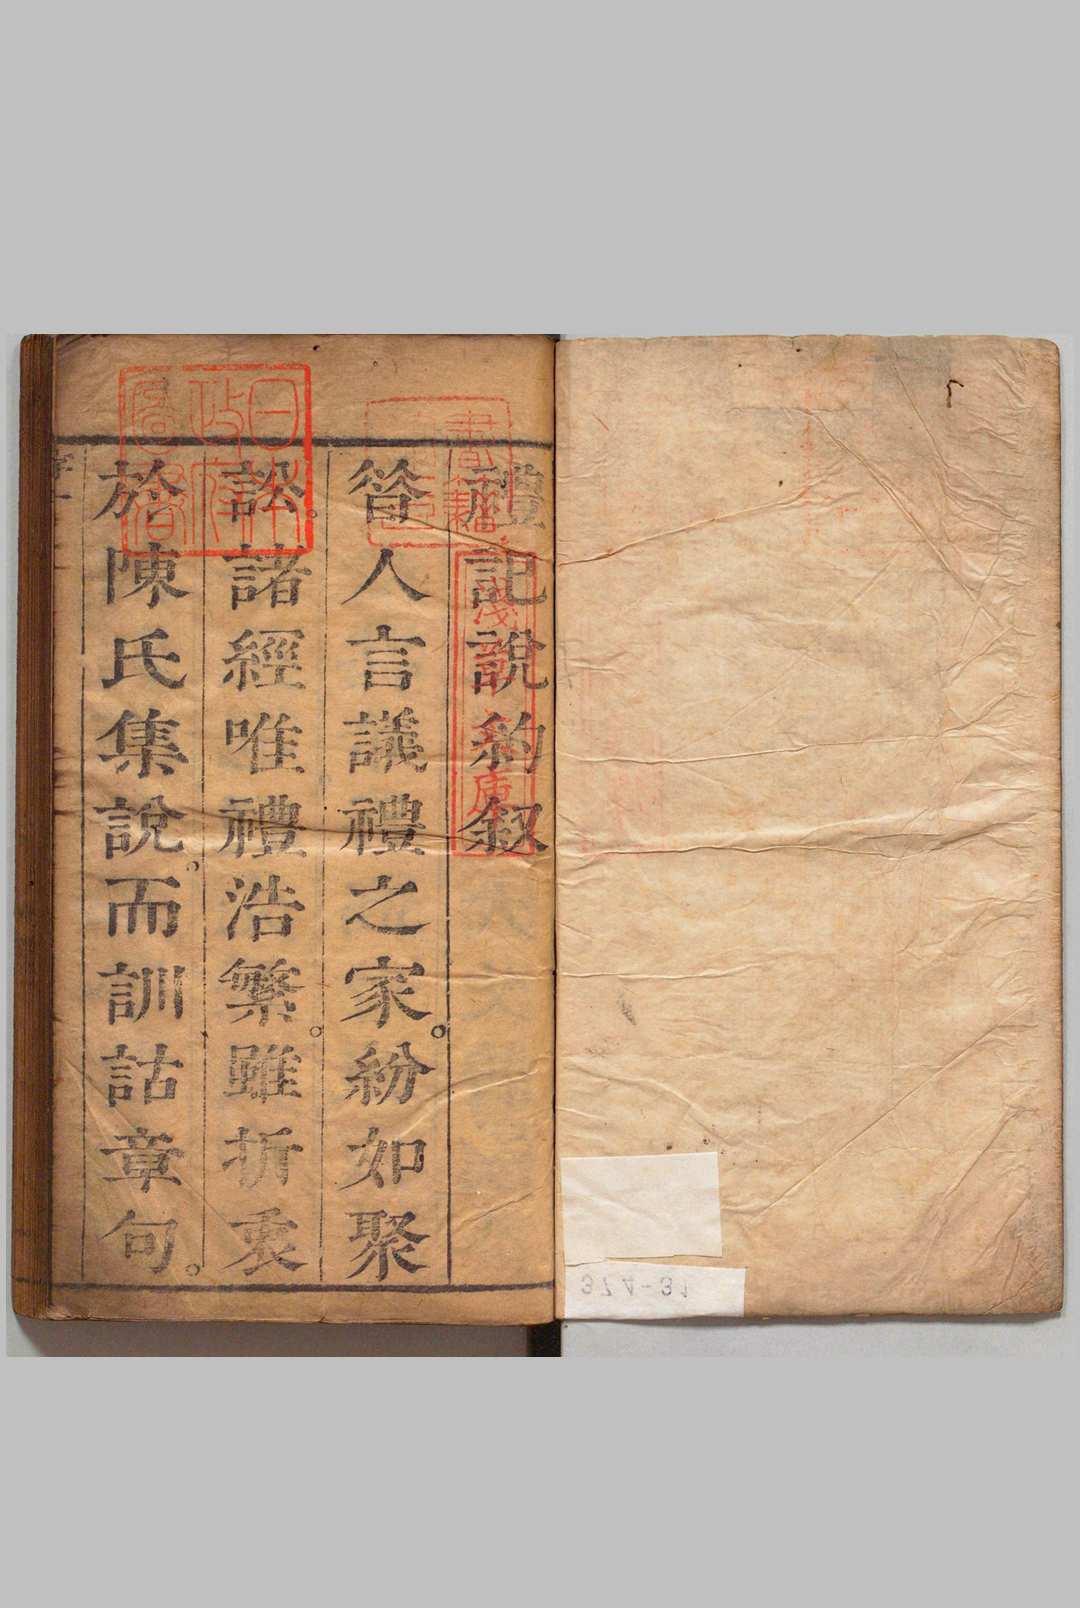 禮記說約叙
昝人言議禮之家。紛如聚
訟。諸經唯禮浩繁。雖折衷
於陳氏集說。而訓詁章句。
日本
政府
圖書
書籍
淺草文庫
374-31